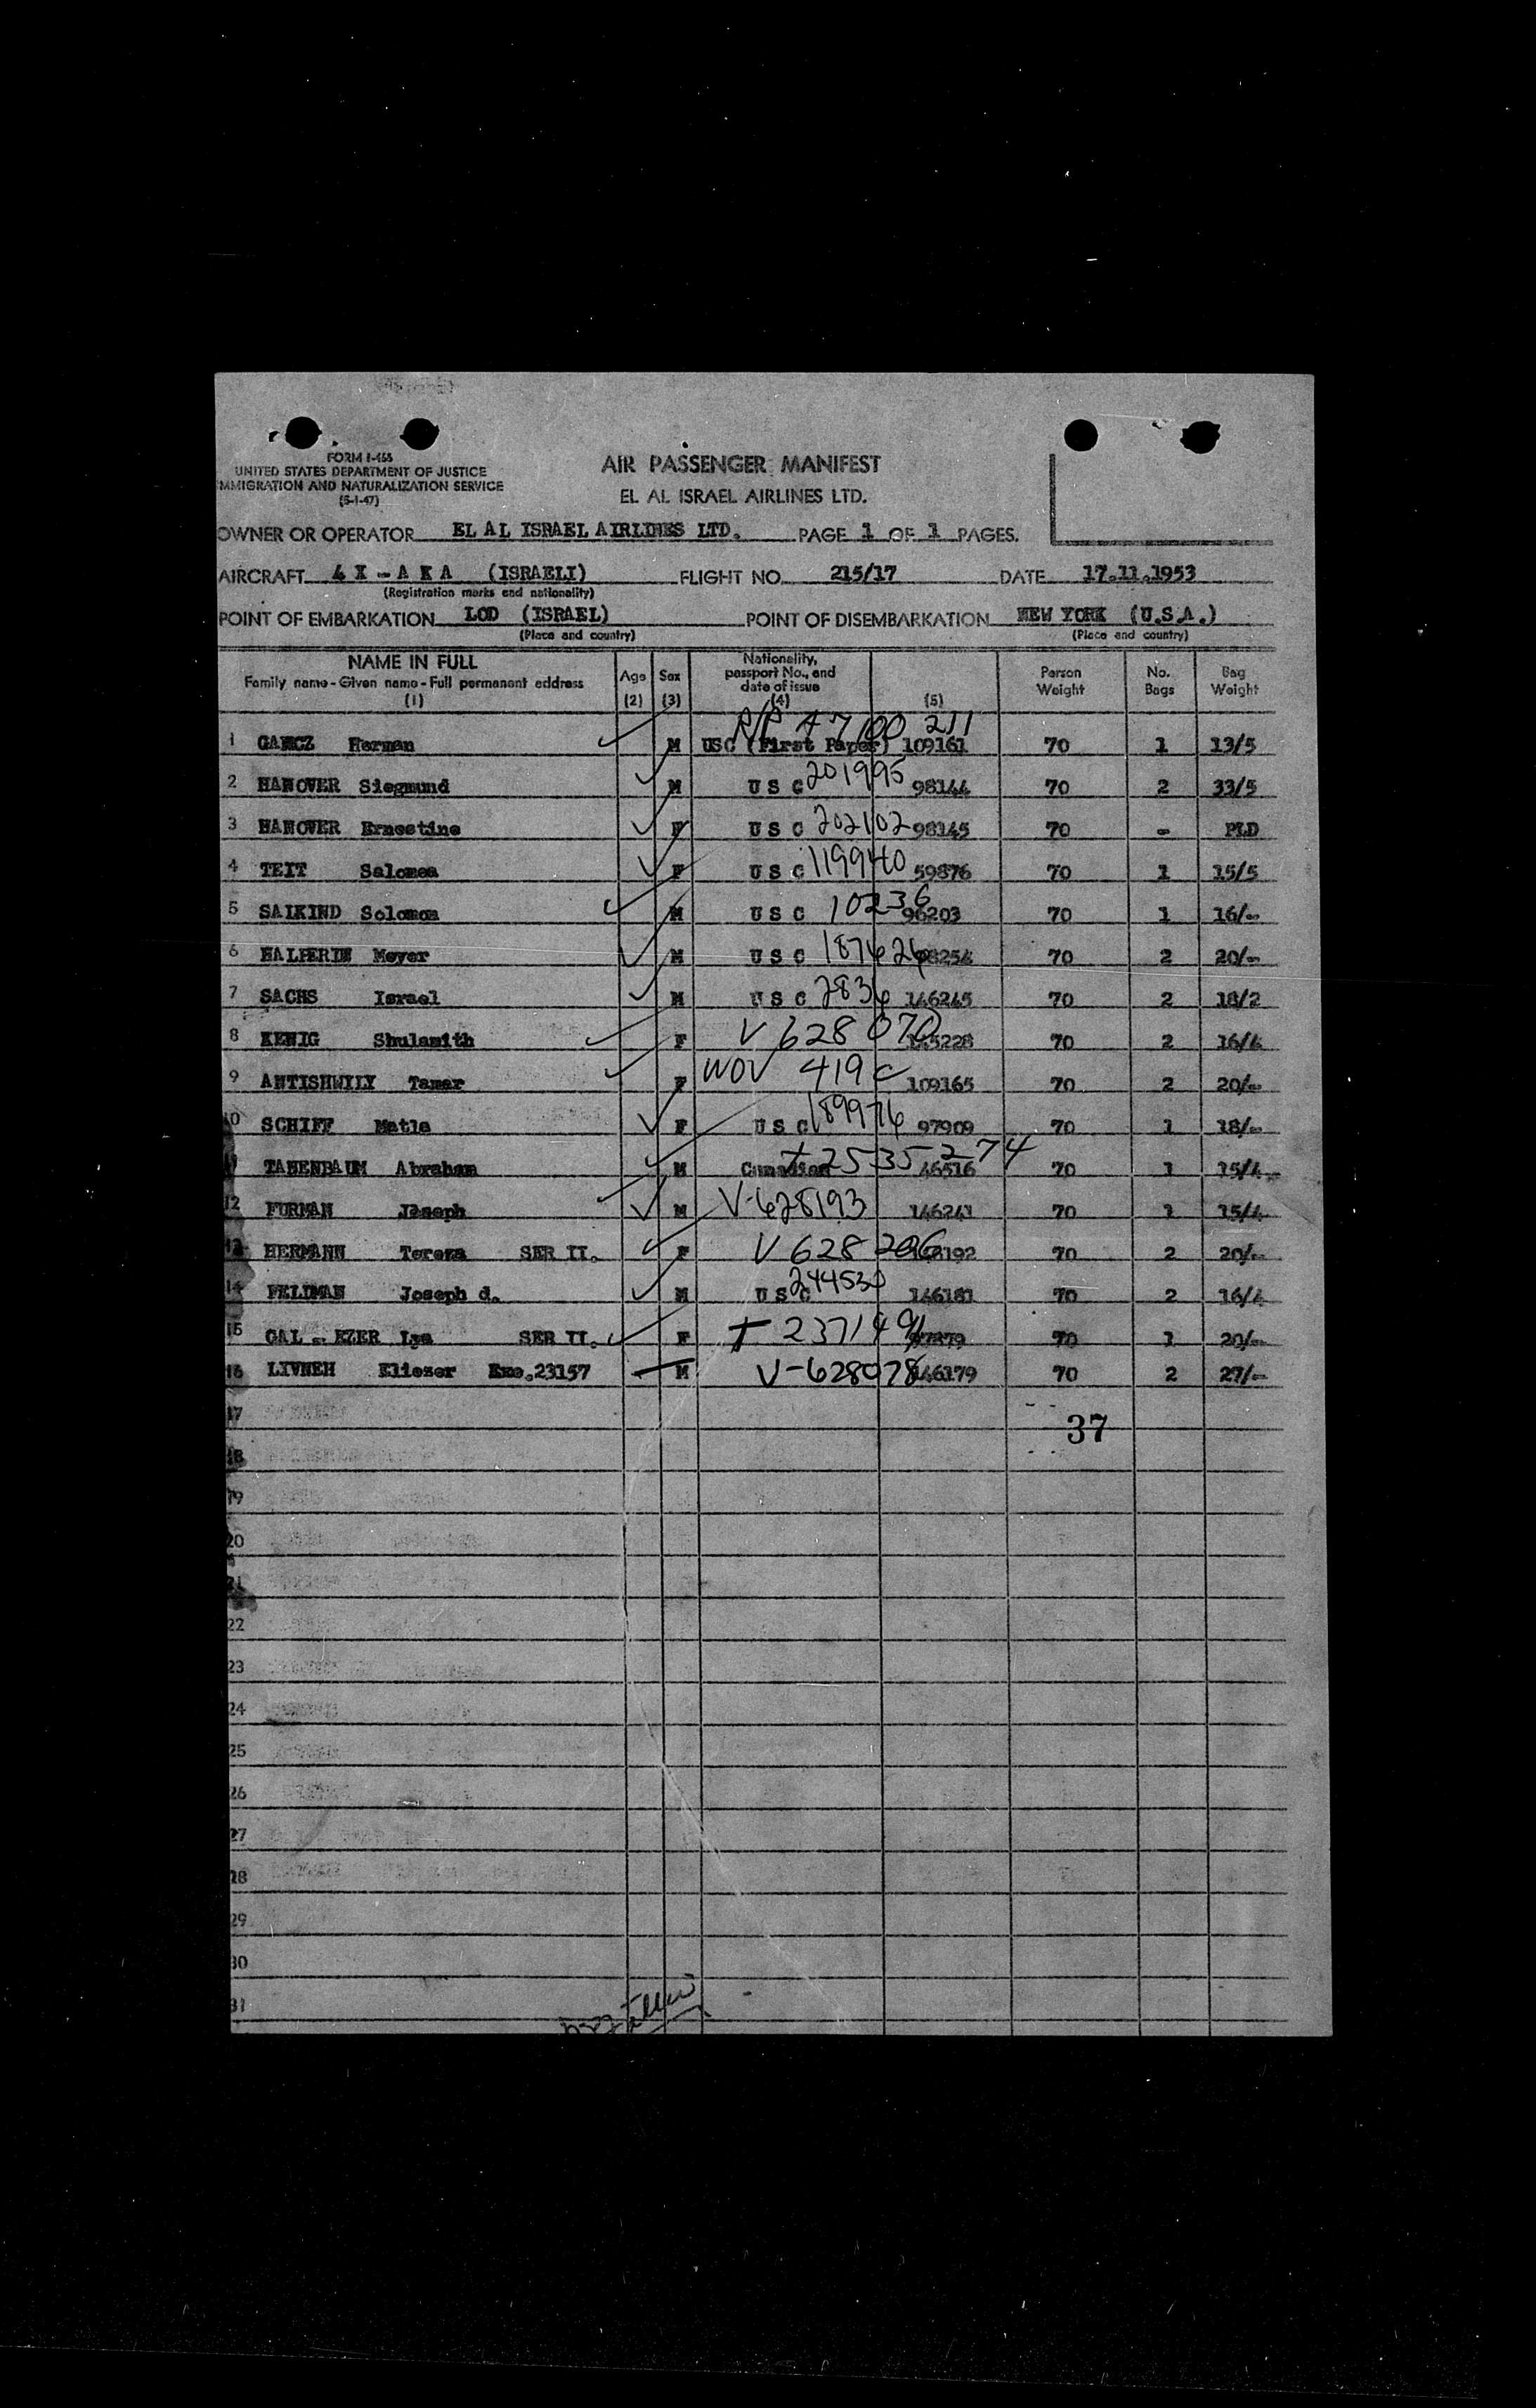 FORM I-466
UNITED STATES DEPARTMENT OF JUSTICE
IMMIGRATION AND NATURALIZATION SERVICE
(5-1-47)
AIR PASSENGER MANIFEST
EL AL ISRAEL AIRLINES LTD.
OWNER OR OPERATOR EL AL ISRAEL AIRLINES LTD. PAGE 1 OF 1 PAGES.
AIRCRAFT 4 X - A K A (ISRAELI) FLIGHT NO. 215/17 DATE 17.11.1953
(Registration marks and nationality)
POINT OF EMBARKATION LOD (ISRAEL) POINT OF DISEMBARKATION NEW YORK (U.S.A.)
(Place and country) (Place and country)
NAME IN FULL Family name - Given name - Full permanent address (1) Age (2) Sex (3) Nationality, passport No., and date of issue (4) (5) Person Weight No. Bags Bag Weight
R/P A 7 100 211
1 Herman M USC (First Paper) 109161 70 1 13/5
2 HANOVER Siegmund M U S C 201995 98144 70 2 33/5
3 HANOVER Ernestine F U S C 202102 98145 70 - PLD
4 TEIT Salomea F U S C 119940 59876 70 1 15/5
5 SALKIND Solomon M U S C 10236 96203 70 1 16/-
6 HALPERIN Meyer M U S C 187626 98254 70 2 20/-
7 SACHS Israel M U S C 2836 146245 70 2 18/2
8 KENIG Shulamith F V 628 070 70 2 16/4
9 ANTISHWILY Tamar F WOV 419 C 109165 70 2 20/-
10 SCHIFF Matla F U S C 189976 97909 70 1 18/-
11 TANENBAUM Abraham M Canadian T 2535274 46516 70 1 15/4
12 FURMAN Joseph M V-628193 146241 70 1 15/4
13 HERMANN Tereza SER II. F V 628 206 70 2 20/-
14 FELDMAN Joseph d. M U S C 244530 146181 70 2 16/4
15 GAL - EZER Lya SER II. F T 2371491 70 1 20/-
16 LIVNEH Eliezer Exc.23157 M V-628078 146179 70 2 27/-
17 37
18
19
20
21
22
23
24
25
26
27
28
29
30
31